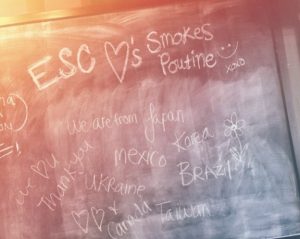 ESC ♡'s Smokes
Poutine
xoxo
We are from Japan
Korea
MEXICO
BRAZIL
Thank you
UKRAINE
Canada
Taiwan